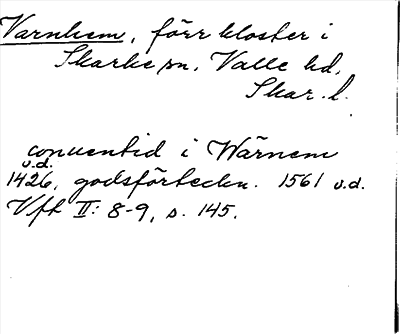 Varnhem, förr kloster i
Skarke sn, Valle hd,
Skar. l.
conuentid i Wärnem
u.d.
1426, godsförteckn. 1561 u.d.
Vft II: 8-9, s. 145.